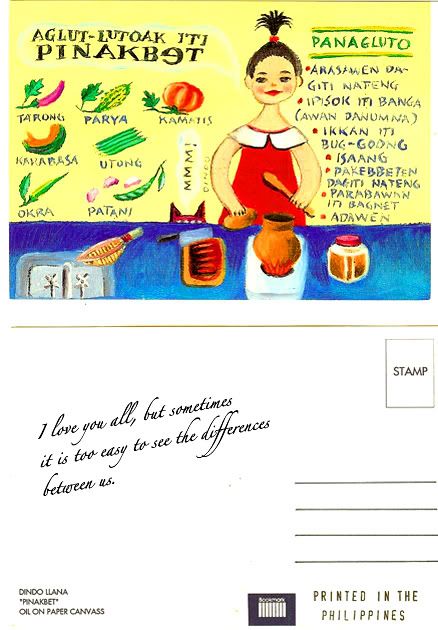 AGLUT-LUTOAK ITI
PINAKBƏT
TARONG
PARYA
KAMATIS
KARABASA
UTONG
OKRA
PATANI
MMM!
DINDO
PANAGLUTO
• ARASAWEN DA-
GITI NATENG
• IPISOK ITI BANGA
(AWAN DANUMNA)
• IKKAN ITI
BUG-GOONG
• ISAANG
• PAKEBBETEN
DAGITI NATENG
• PARABAWAN
ITI BAGNET
• ADAWEN
STAMP
I love you all, but sometimes
it is too easy to see the differences
between us.
DINDO LLANA
"PINAKBET"
OIL ON PAPER CANVASS
Bookmark
PRINTED IN THE
PHILIPPINES